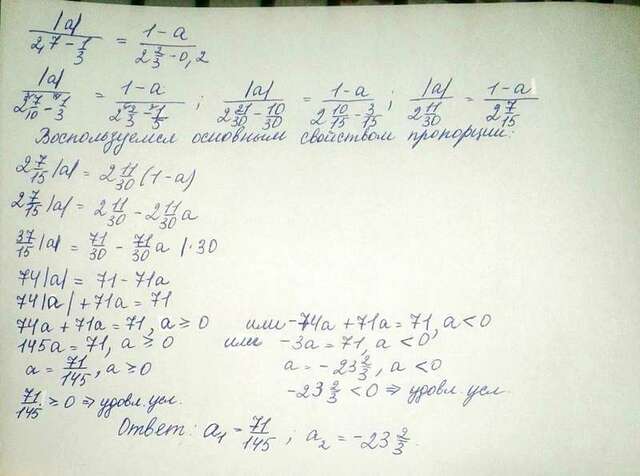 |a| / (2,7 - 1/3) = (1-a) / (2 2/3 - 0,2)
|a| / (2 7/10 - 1/3) = (1-a) / (2 2/3 - 1/5) ; |a| / (2 21/30 - 10/30) = (1-a) / (2 10/15 - 3/15) ; |a| / (2 11/30) = (1-a) / (2 7/15)
Воспользуемся основным свойством пропорции:
2 7/15 |a| = 2 11/30 (1-a)
2 7/15 |a| = 2 11/30 - 2 11/30 a
37/15 |a| = 71/30 - 71/30 a |·30
74|a| = 71-71a
74|a| + 71a = 71
74a + 71a = 71, a ≥ 0 или -74a + 71a = 71, a < 0
145a = 71, a ≥ 0 или -3a = 71, a < 0
a = 71/145, a ≥ 0 a = -23 2/3, a < 0
71/145 ≥ 0 ⇒ удовл. усл. -23 2/3 < 0 ⇒ удовл. усл.
Ответ: a₁ = 71/145 ; a₂ = -23 2/3.